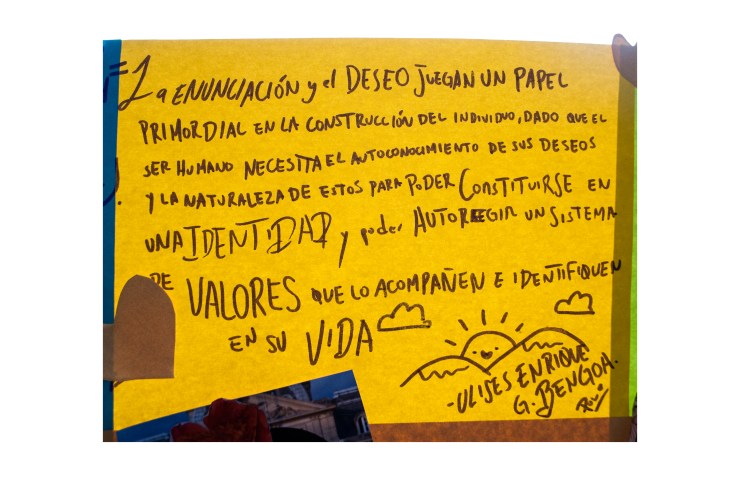 La ENUNCIACIÓN y el DESEO JUEGAN UN PAPEL
PRIMORDIAL EN LA CONSTRUCCIÓN DEL INDIVIDUO, DADO QUE EL
SER HUMANO NECESITA EL AUTOCONOCIMIENTO DE SUS DESEOS
Y LA NATURALEZA DE ESTOS PARA PODER CONSTITUIRSE EN
UNA IDENTIDAD y poder AUTOREGIR UN SISTEMA
DE VALORES QUE LO ACOMPAÑEN E IDENTIFIQUEN
EN SU VIDA
-ULISES ENRIQUE
G. BENGOA.